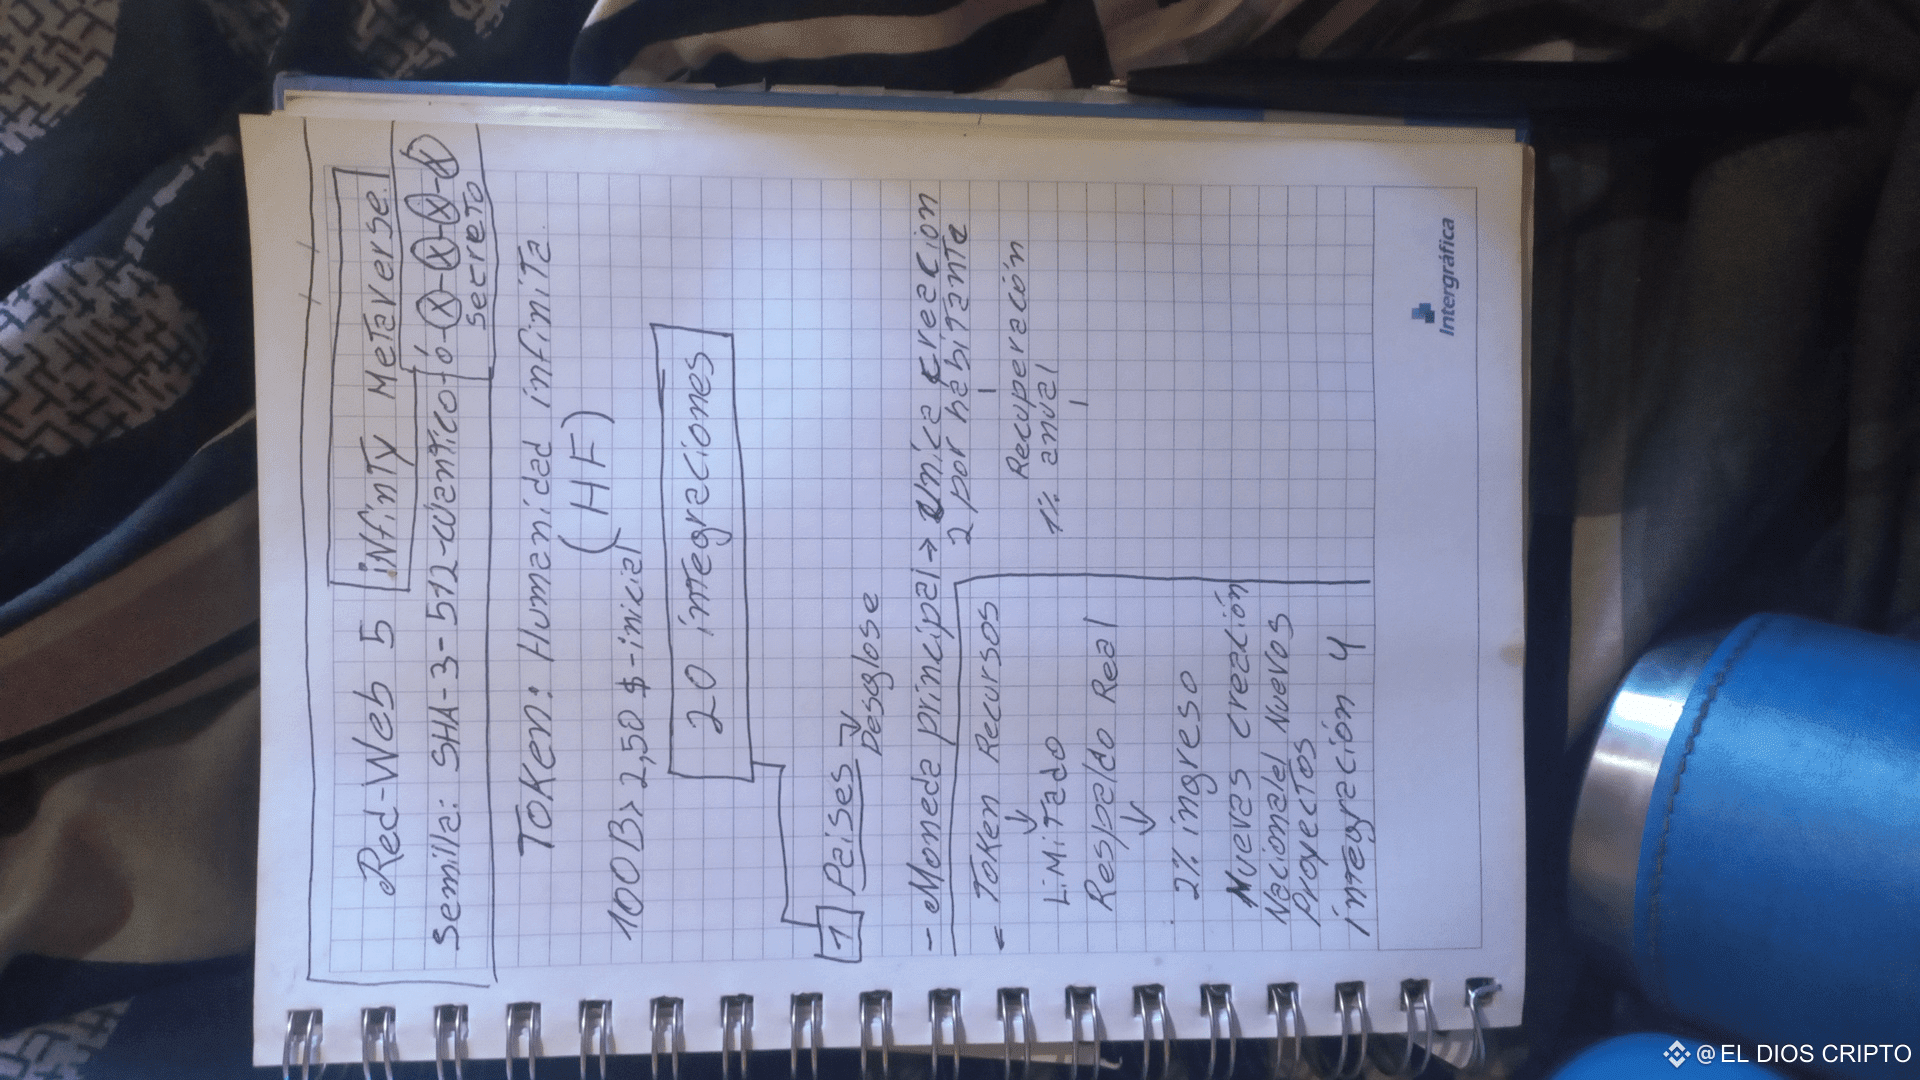 Red-Web 5 iNfinTy MeTaverse.
Semilla: SHA-3-512-WanTico-ó-X-X-X-X
secreTo
TOKen: Humanidad infiniTa.
(HF)
100B> 2,50 $-inicial
20 inTegraciones
1 Paises
Desglose
- Moneda principal → Unica creacion
2 por habiTanTe
Recuperación
1% anual
= TOKen Recursos
LiMiTado
Respaldo Real
2% ingreso
Nuevas creación
Nacionales Nuevos
ProyecTos
inTegración 4
Intergráfica
@EL DIOS CRIPTO